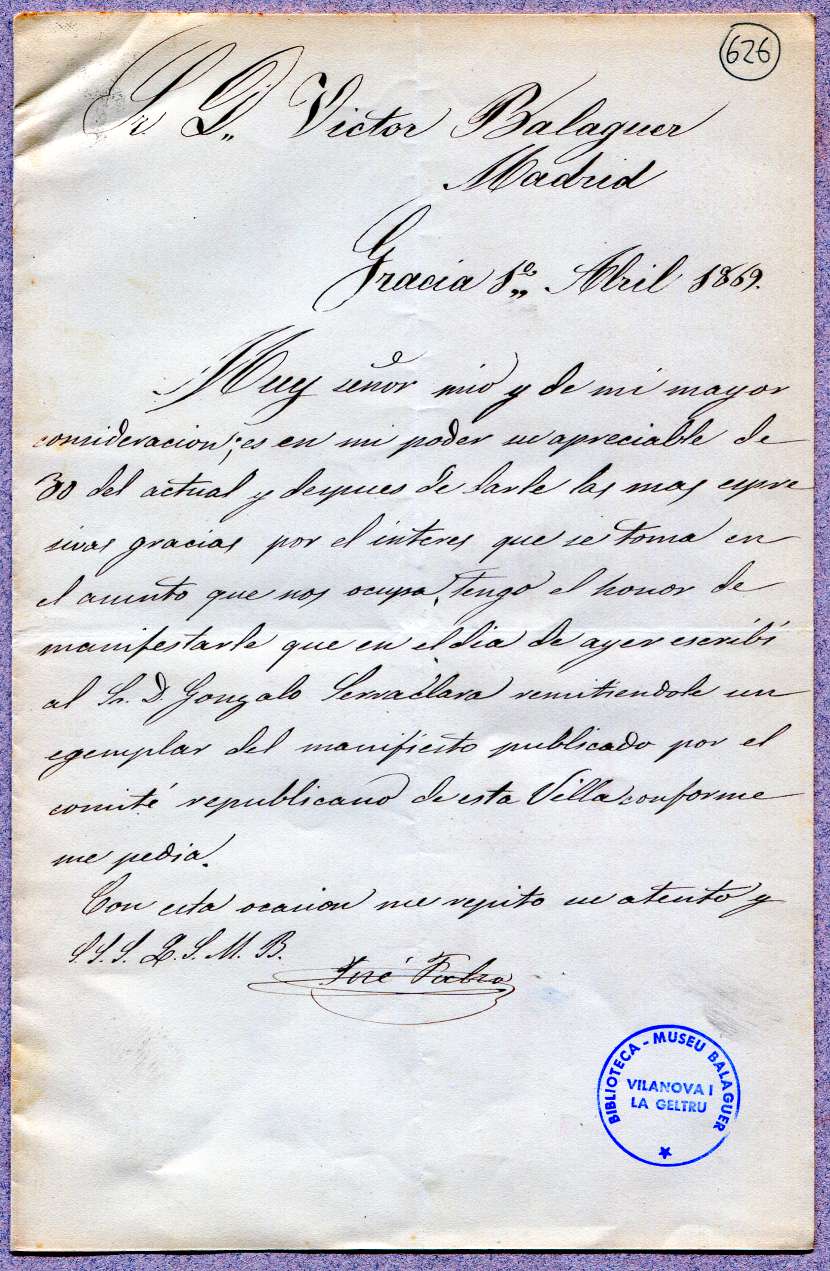 626
Sr. D. Victor Balaguer
Madrid
Gracia 1º Abril 1869.
Muy señor mio y de mi mayor
consideracion; es en mi poder su apreciable de
30 del actual y despues de darle las mas espre
sivas gracias por el interes que se toma en
el asunto que nos ocupa, tengo el honor de
manifestarle que en el dia de ayer escribí
al Sr. D. Gonzalo Serraclara remitiendole un
egemplar del manifiesto publicado por el
comité republicano de esta Villa conforme
me pedia.
Con esta ocasion me repito su atento y
S.S.S. Q.S.M.B.
José Fabra
BIBLIOTECA - MUSEU BALAGUER
VILANOVA I
LA GELTRU